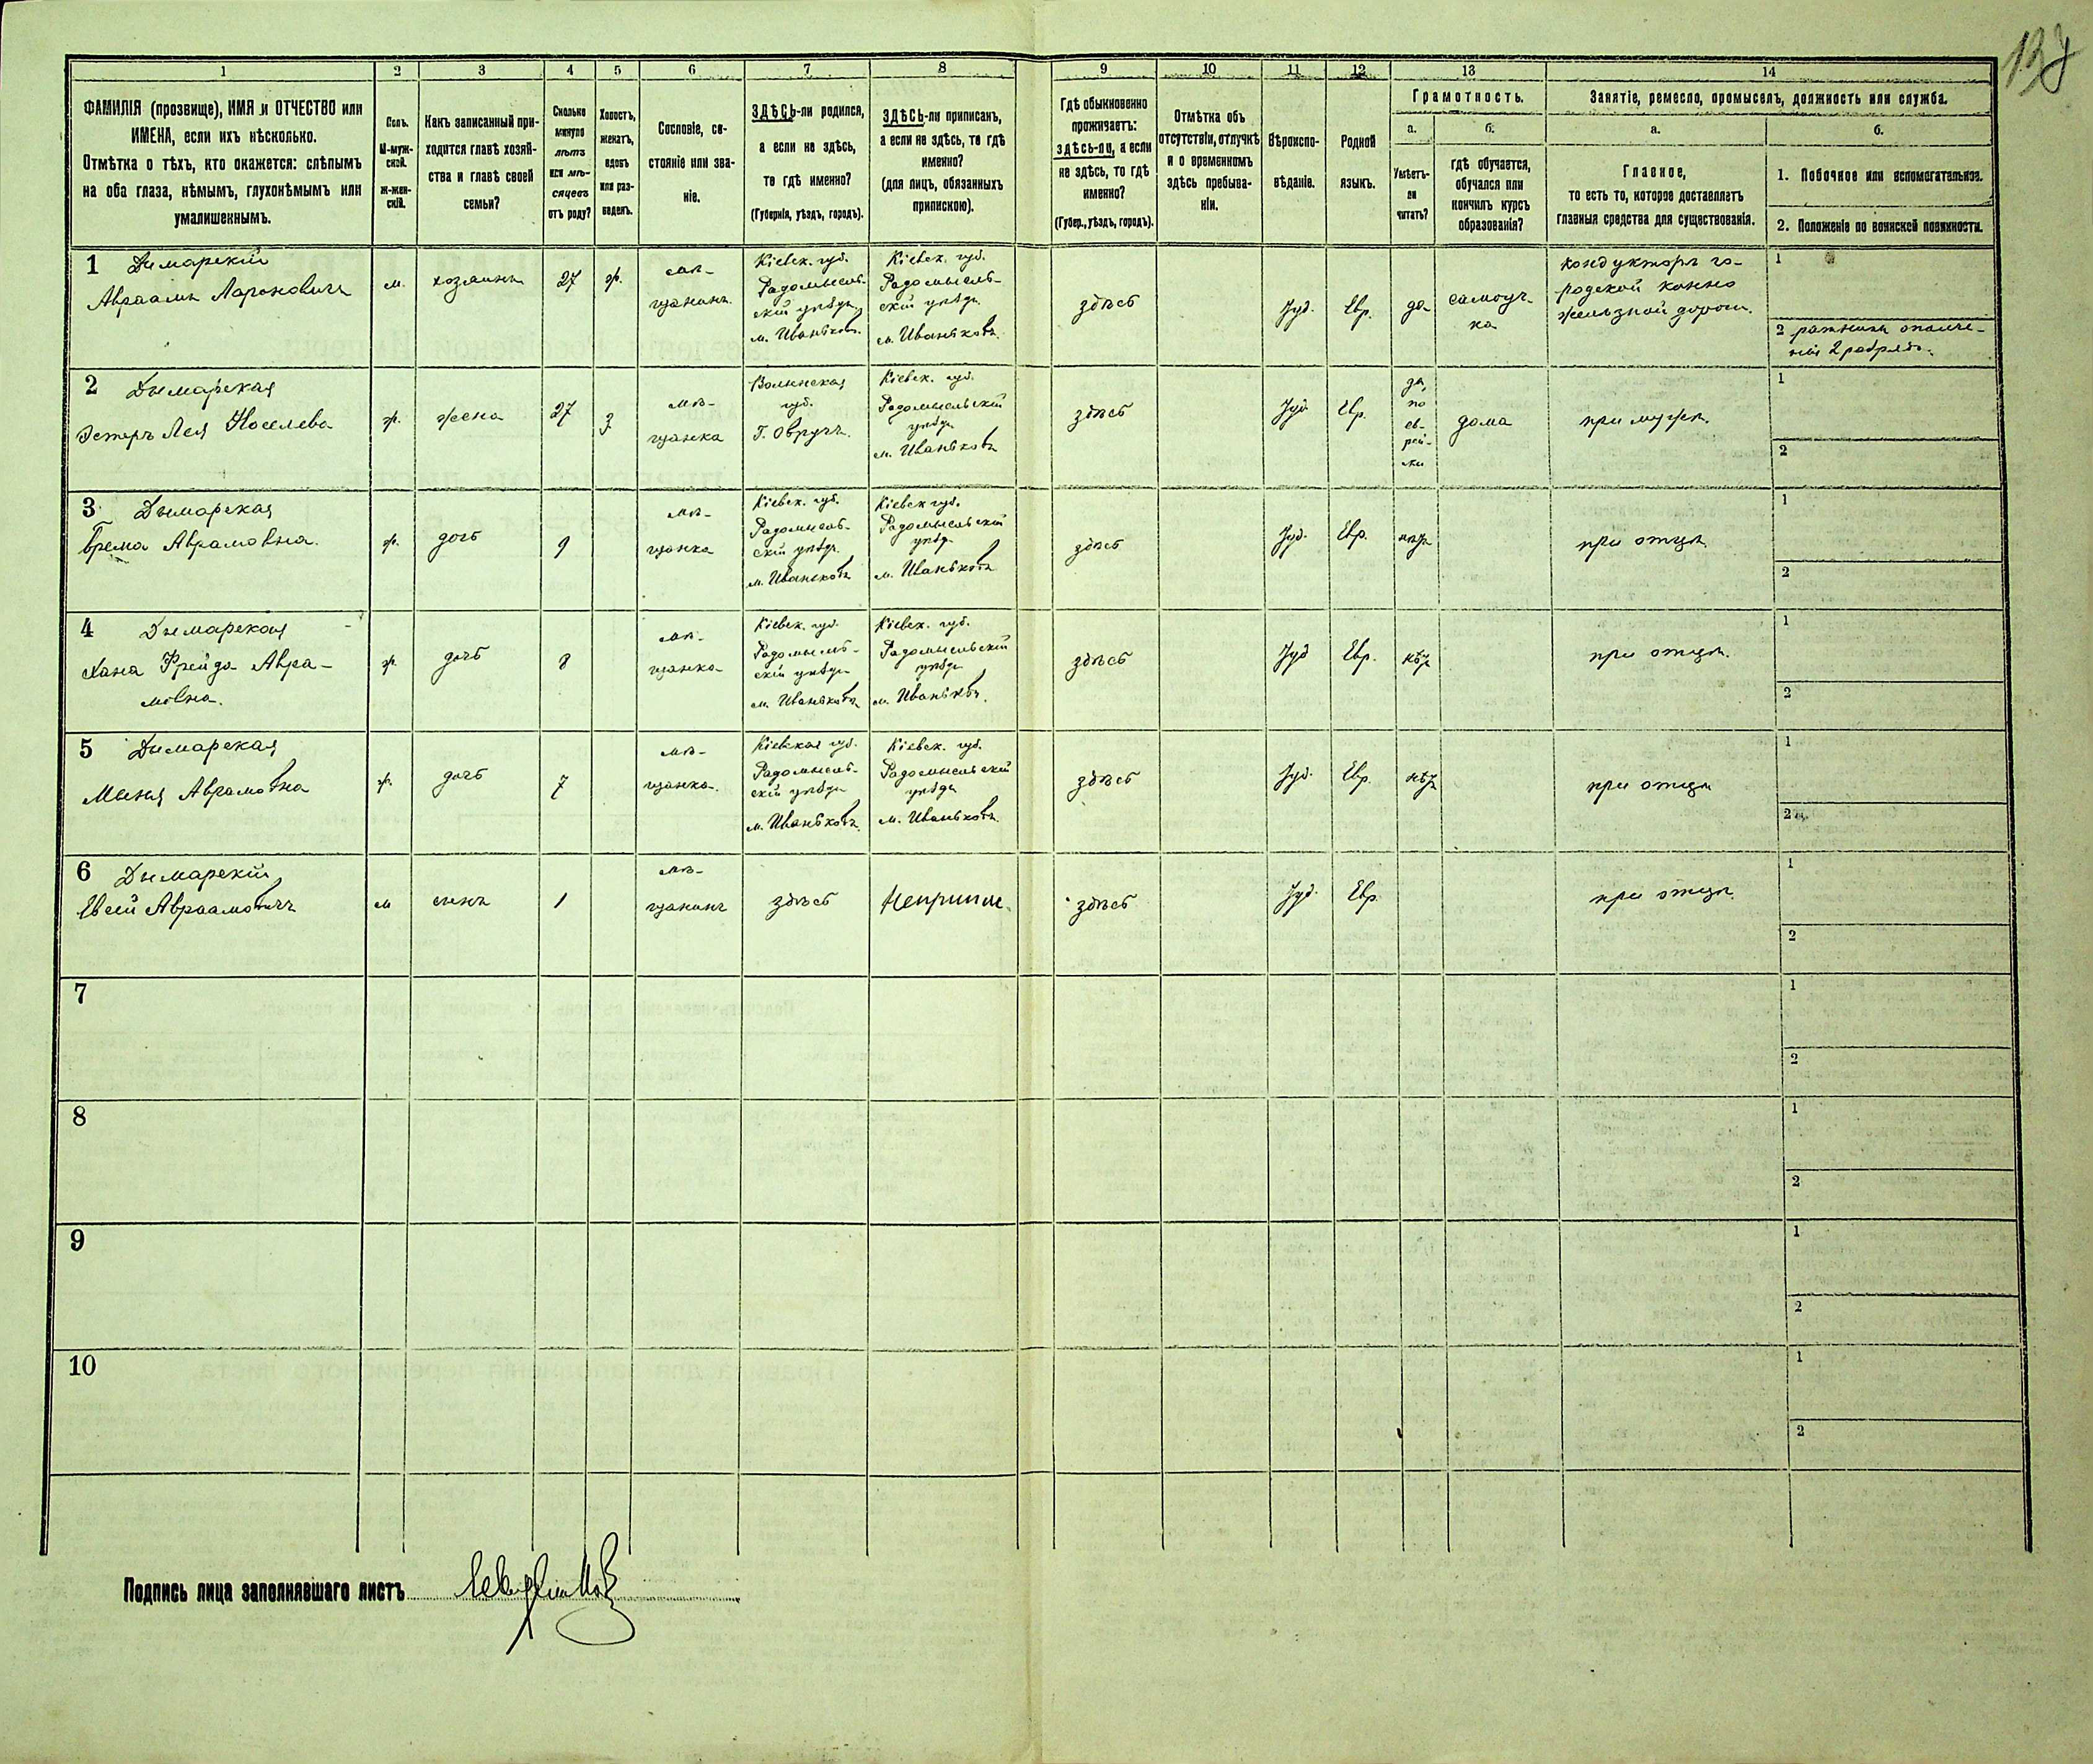 137
1 2 3 4 5 6 7 8 9 10 11 12 13 14
ФАМИЛІЯ (прозвище), ИМЯ и ОТЧЕСТВО или
ИМЕНА, если ихъ нѣсколько.
Отмѣтка о тѣхъ, кто окажется: слѣпымъ
на оба глаза, нѣмымъ, глухонѣмымъ или
умалишеннымъ.
Полъ.
М-муж-
ской.
Ж-жен-
скій.
Какъ записанный при-
ходится главѣ хозяй-
ства и главѣ своей
семьи?
Сколько
минуло
лѣтъ
или мѣ-
сяцевъ
отъ роду?
Холостъ,
женатъ,
вдовъ
или раз-
веденъ.
Сословіе, со-
стояніе или зва-
ніе.
ЗДѢСЬ-ли родился,
а если не здѣсь,
то гдѣ именно?
(Губернія, уѣздъ, городъ).
ЗДѢСЬ-ли приписанъ,
а если не здѣсь, то гдѣ
именно?
(для лицъ, обязанныхъ
припискою).
Гдѣ обыкновенно
проживаетъ:
здѣсь-ли, а если
не здѣсь, то гдѣ
именно?
(Губер., уѣздъ, городъ).
Отмѣтка объ
отсутствіи, отлучкѣ
и о временномъ
здѣсь пребыва-
ніи.
Вѣроиспо-
вѣданіе.
Родной
языкъ.
Грамотность.
а.
Умѣетъ-
ли
читать?
б.
гдѣ обучается,
обучался или
кончилъ курсъ
образованія?
Занятіе, ремесло, промыселъ, должность или служба.
а.
Главное,
то есть то, которое доставляетъ
главныя средства для существованія.
б.
1. Побочное или вспомогательное.
2. Положеніе по воинской повинности.
1 Дымарскій
Авраамъ Лароновичъ
м.
хозяинъ
27
ж.
мѣ-
щанинъ
Кіевск. губ.
Радомысль-
скій уѣздъ
м. Иваньковъ.
Кіевск. губ.
Радомысль-
скій уѣздъ
м. Иваньковъ.
здѣсь
Іуд.
Евр.
да
самоуч-
ка
кондукторъ го-
родской конно
желѣзной дороги.
1
2 ратникъ ополче-
нія 2 разряда.
2 Дымарская
Эстеръ Лея Іоселева
ж.
жена
27
з.
мѣ-
щанка
Волынская
губ.
г. Овручъ.
Кіевск. губ.
Радомысльскій
уѣздъ
м. Иваньковъ
здѣсь
Іуд.
Евр.
да,
по
ев-
рей-
ски
дома
при мужѣ.
1
2
3 Дымарская
Авраамовна.
ж.
дочь
9
мѣ-
щанка
Кіевск. губ.
Радомысль-
скій уѣздъ
м. Иваньковъ
Кіевск губ.
Радомысльскій
уѣзд.
м. Иваньковъ
здѣсь
Іуд.
Евр.
нѣтъ
при отцѣ.
1
2
4 Дымарская
Хана Фрейда Авра-
мовна.
ж.
дочь
8
мѣ-
щанка
Кіевск. губ.
Радомысль-
скій уѣздъ
м. Иваньковъ
Кіевск. губ.
Радомысльскій
уѣздъ
м. Иваньковъ.
здѣсь
Іуд
Евр.
нѣтъ
при отцѣ.
1
2
5 Дымарская
Маня Аврамовна
ж.
дочь
7
мѣ-
щанка.
Кіевская губ.
Радомысль-
скій уѣздъ
м. Иваньковъ.
Кіевск. губ.
Радомысльскій
уѣздъ
м. Иваньковъ.
здѣсь
Іуд.
Евр.
нѣтъ
при отцѣ
1
2
6 Дымарскій
Евсей Авраамовичъ
м
сынъ
1
мѣ-
щанинъ
здѣсь
Неприпис.
здѣсь
Іуд.
Евр.
при отцѣ.
1
2
7
1
2
8
1
2
9
1
2
10
1
2
Подпись лица заполнявшаго листъ